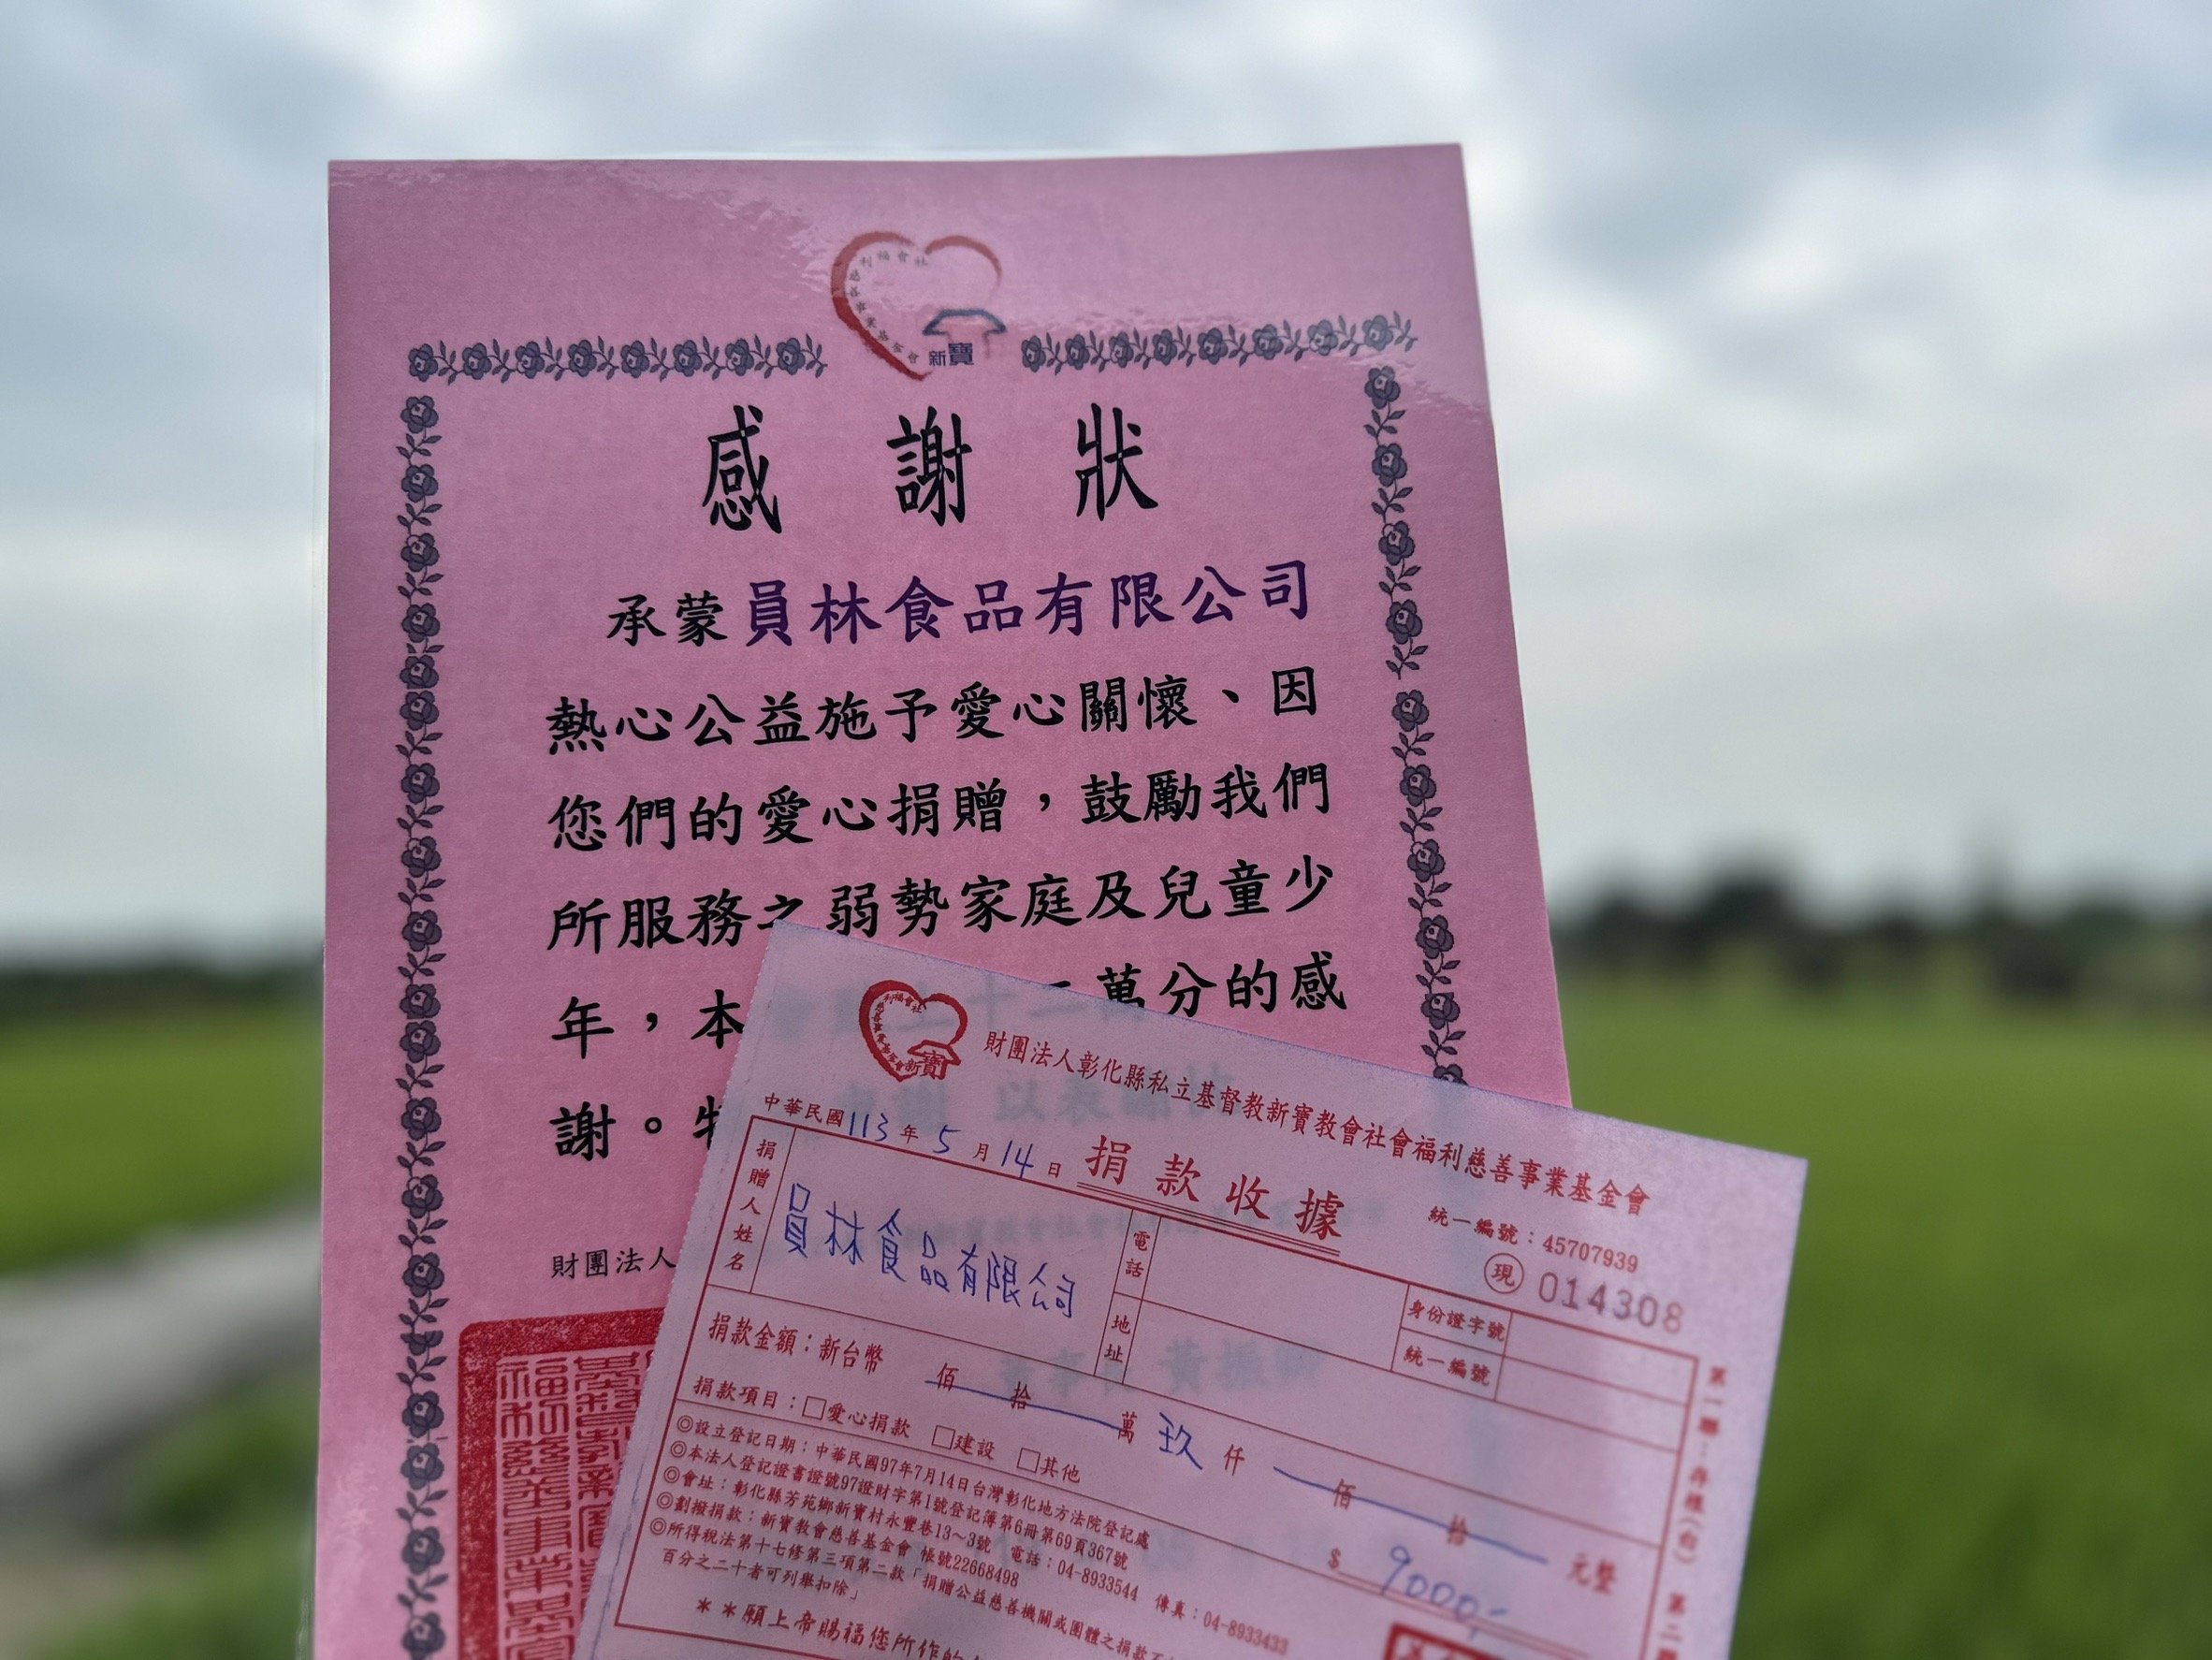 新寶
感謝狀
承蒙員林食品有限公司
熱心公益施予愛心關懷、因
您們的愛心捐贈，鼓勵我們
所服務之弱勢家庭及兒童少
年，本 萬分的感
謝。特
財團法人
新寶
財團法人彰化縣私立基督教新寶教會社會福利慈善事業基金會
中華民國113年5月14日
捐款收據
統一編號：45707939
現 014308
捐贈人姓名
員林食品有限公司
電話
地址
身份證字號
統一編號
捐款金額：新台幣 佰 拾 萬 玖 仟 佰 拾 元整
捐款項目：□愛心捐款 □建設 □其他
$ 9000,-
◎設立登記日期：中華民國97年7月14日台灣彰化地方法院登記處
◎本法人登記證書證號97證財字第1號登記簿第6冊第69頁367號
◎會址：彰化縣芳苑鄉新寶村永豐巷13～3號 電話：04-8933544 傳真：04-8933433
◎劃撥捐款：新寶教會慈善基金會 帳號22668498
◎所得稅法第十七修第三項第二款「捐贈公益慈善機關或團體之捐款不
百分之二十者可列舉扣除」
＊＊願上帝賜福您所作的
第一聯：存根(白) 第二